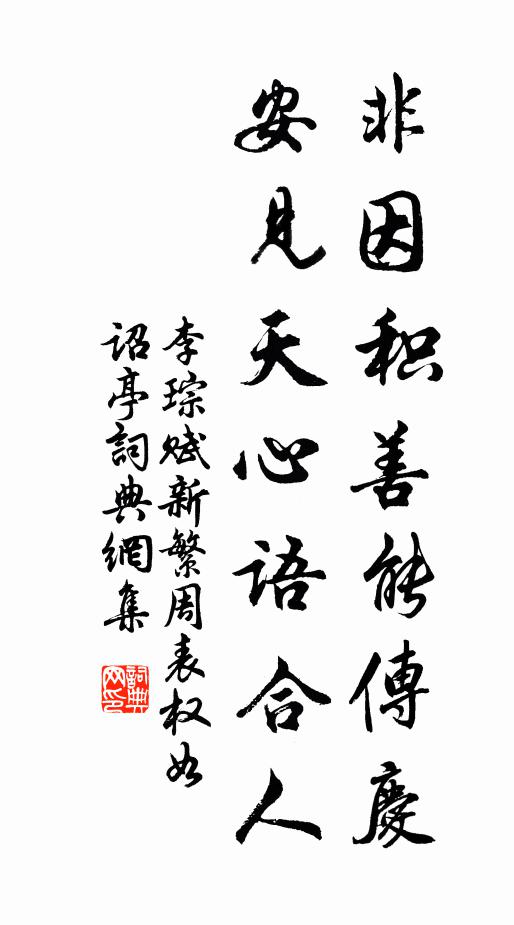 非因积善能傳慶
安見天心语合人
李琮赋新繁周表权如
诏亭詞典網集
詞典
网印